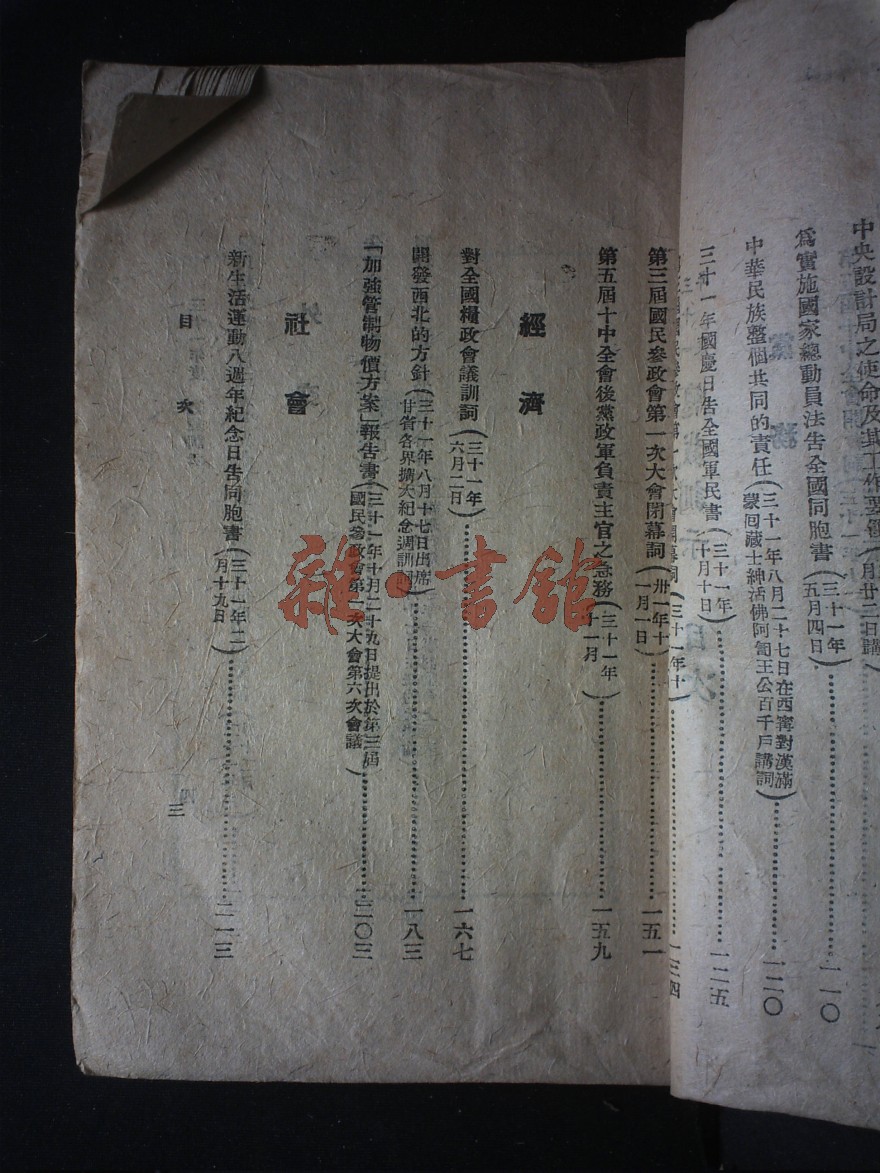 中央設計局之使命及其工作要領
月廿二日講
爲實施國家總動員法告全國同胞書(三十一年五月四日)⋯⋯一一〇
中華民族整個共同的責任(三十一年八月二十七日在西寧對漢滿蒙回藏士紳活佛阿訇王公百千戶講詞)⋯⋯一二〇
三十一年國慶日告全國軍民書(三十一年十月十日)⋯⋯一二五
第一次大會開幕詞(三十一年十⋯⋯一三四
第三屆國民參政會第一次大會閉幕詞(卅一年十一月一日)⋯⋯一五一
第五屆十中全會後黨政軍負責主官之急務(三十一年十一月)⋯⋯一五九
經濟
對全國糧政會議訓詞(三十一年六月二日)⋯⋯一六七
開發西北的方針(三十一年八月十七日出席甘省各界擴大紀念週訓詞)⋯⋯一八三
「加強管制物價方案」報告書(三十一年十月二十九日提出於第三屆國民參政會第一次大會第六次會議)⋯⋯二〇三
社會
新生活運動八週年紀念日告同胞書(三十一年二月十九日)⋯⋯二一三
目次
三
雜·書館